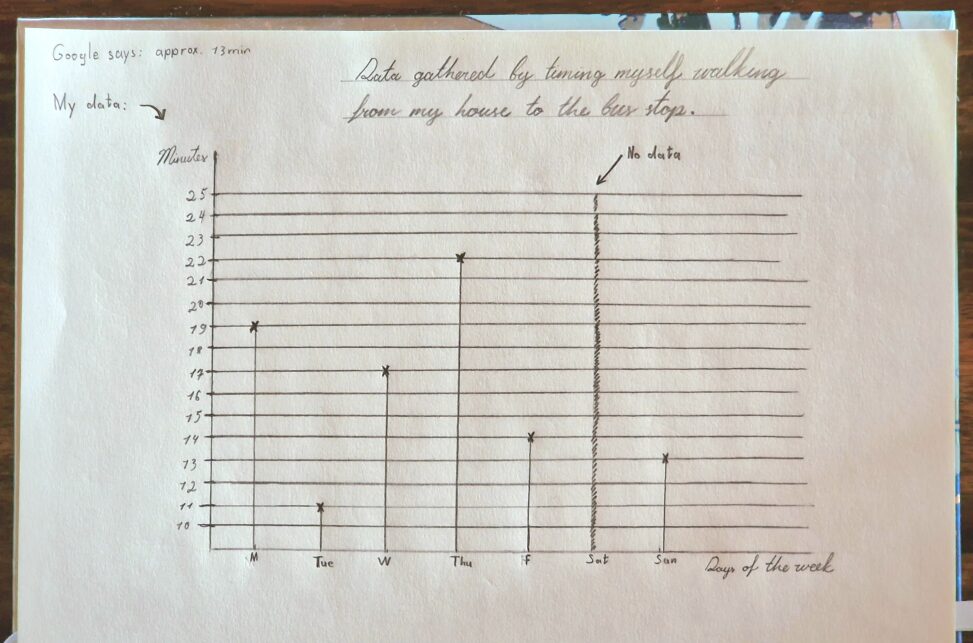 Google says: approx. 13min
Data gathered by timing myself walking
from my house to the bus stop.
My data:
Minutes
No data
25
24
23
22
21
20
19
18
17
16
15
14
13
12
11
10
M Tue W Thu F Sat Sun
Days of the week